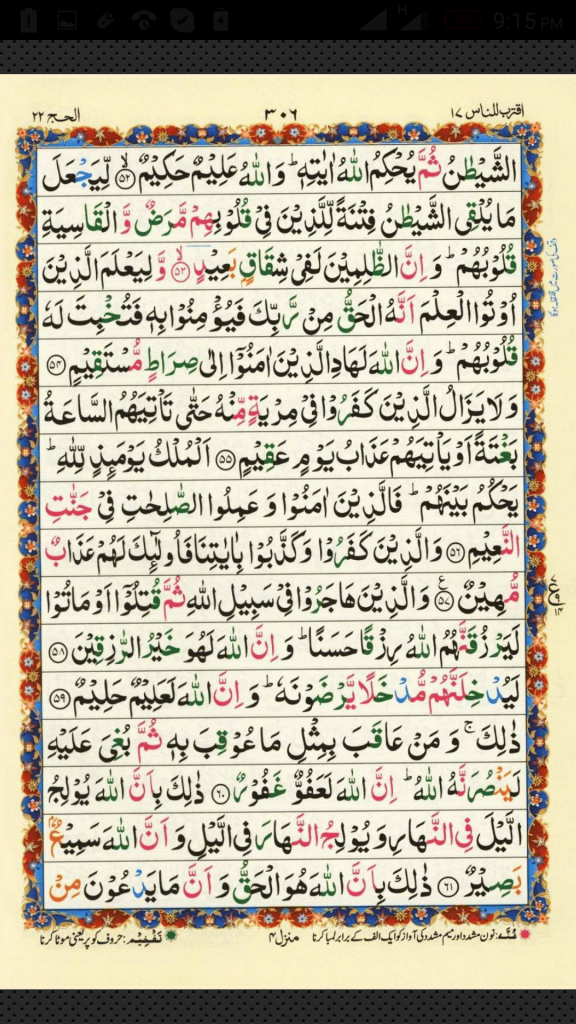 9:15 PM
H
اقترب للناس ١٧
٣٠٦
الحج ٢٢
الشَّيْطٰنُ ثُمَّ يُحْكِمُ اللّٰهُ اٰيٰتِهٖ ؕ وَ اللّٰهُ عَلِيْمٌ حَكِيْمٌ ۙ‏﴿۵۲﴾ لِّيَجْعَلَ
مَا يُلْقِى الشَّيْطٰنُ فِتْنَةً لِّلَّذِيْنَ فِىْ قُلُوْبِهِمْ مَّرَضٌ وَّ الْقَاسِيَةِ
قُلُوْبُهُمْ ؕ وَ اِنَّ الظّٰلِمِيْنَ لَفِىْ شِقَاقٍۭ بَعِيْدٍ ۙ‏﴿۵۳﴾ وَّ لِيَعْلَمَ الَّذِيْنَ
اُوْتُوا الْعِلْمَ اَنَّهُ الْحَقُّ مِنْ رَّبِّكَ فَيُؤْمِنُوْا بِهٖ فَتُخْبِتَ لَهٗ
قُلُوْبُهُمْ ؕ وَ اِنَّ اللّٰهَ لَهَادِ الَّذِيْنَ اٰمَنُوْۤا اِلٰى صِرَاطٍ مُّسْتَقِيْمٍ ﴿۵۴﴾
وَ لَا يَزَالُ الَّذِيْنَ كَفَرُوْا فِىْ مِرْيَةٍ مِّنْهُ حَتّٰى تَاْتِيَهُمُ السَّاعَةُ
بَغْتَةً اَوْ يَاْتِيَهُمْ عَذَابُ يَوْمٍ عَقِيْمٍ ﴿۵۵﴾ اَلْمُلْكُ يَوْمَئِذٍ لِّلّٰهِ ؕ
يَحْكُمُ بَيْنَهُمْ ؕ فَالَّذِيْنَ اٰمَنُوْا وَ عَمِلُوا الصّٰلِحٰتِ فِىْ جَنّٰتِ
النَّعِيْمِ ﴿۵۶﴾ وَالَّذِيْنَ كَفَرُوْا وَ كَذَّبُوْا بِاٰيٰتِنَا فَاُولٰٓئِكَ لَهُمْ عَذَابٌ
مُّهِيْنٌ ﴿۵۷﴾ ع وَالَّذِيْنَ هَاجَرُوْا فِىْ سَبِيْلِ اللّٰهِ ثُمَّ قُتِلُوْۤا اَوْ مَاتُوْا
لَيَرْزُقَنَّهُمُ اللّٰهُ رِزْقًا حَسَنًا ؕ وَ اِنَّ اللّٰهَ لَهُوَ خَيْرُ الرّٰزِقِيْنَ ﴿۵۸﴾
لَيُدْخِلَنَّهُمْ مُّدْخَلًا يَّرْضَوْنَهٗ ؕ وَ اِنَّ اللّٰهَ لَعَلِيْمٌ حَلِيْمٌ ﴿۵۹﴾
ذٰلِكَ ۚ وَ مَنْ عَاقَبَ بِمِثْلِ مَا عُوْقِبَ بِهٖ ثُمَّ بُغِىَ عَلَيْهِ
لَيَنْصُرَنَّهُ اللّٰهُ ؕ اِنَّ اللّٰهَ لَعَفُوٌّ غَفُوْرٌ ﴿۶۰﴾ ذٰلِكَ بِاَنَّ اللّٰهَ يُوْلِجُ
الَّيْلَ فِى النَّهَارِ وَ يُوْلِجُ النَّهَارَ فِى الَّيْلِ وَ اَنَّ اللّٰهَ سَمِيْعٌۢ
بَصِيْرٌ ﴿۶۱﴾ ذٰلِكَ بِاَنَّ اللّٰهَ هُوَ الْحَقُّ وَ اَنَّ مَا يَدْعُوْنَ مِنْ
غُنَّہ: نون مشدد اور میم مشدد کی آواز کو ایک الف کے برابر لمبا کرنا
منزل ۴
تَفْخِیْم: حروف کو پُر یعنی موٹا کرنا